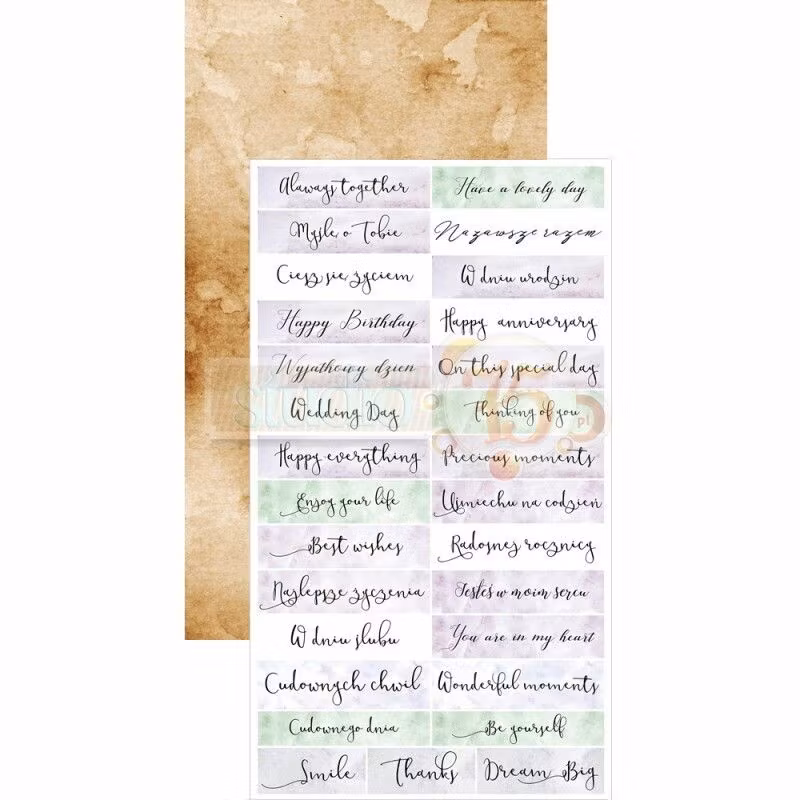 Alaways together
Have a lovely day
Myśle o Tobie
Nazawsze razem
Ciesz się życiem
W dniu urodzin
Happy Birthday
Happy anniversary
Wyjatkowy dzien
On this special day
Wedding Day
Thinking of you
Happy everything
Precious moments
Enjoy your life
Uśmiechu na codzień
Best wishes
Radosnej rocznicy
Najlepsze życzenia
Jesteś w moim sercu
W dniu ślubu
You are in my heart
Cudownych chwil
Wonderful moments
Cudownego dnia
Be yourself
Smile
Thanks
Dream Big
studio 75 pl